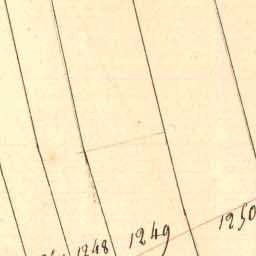 1248
1249
1250